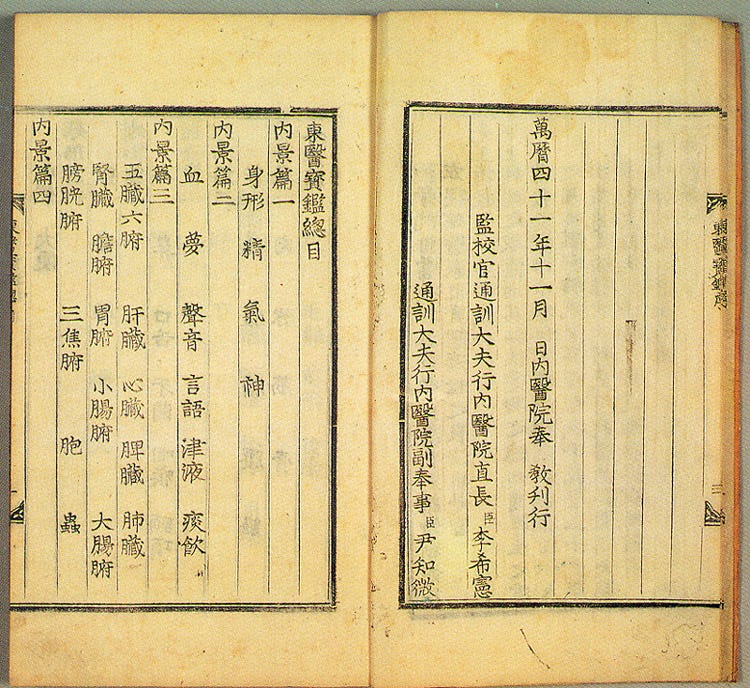 東醫寶鑑序
三
萬曆四十一年十一月 日內醫院奉 敎刋行
監校官通訓大夫行內醫院直長臣李希憲
通訓大夫行內醫院副奉事臣尹知微
東醫寶鑑總目
內景篇一
身形 精 氣 神
內景篇二
血 夢 聲音 言語 津液 痰飮
內景篇三
五臟六腑 肝臟 心臟 脾臟 肺臟
腎臟 膽腑 胃腑 小腸腑 大腸腑
膀胱腑 三焦腑 胞 蟲
內景篇四
一